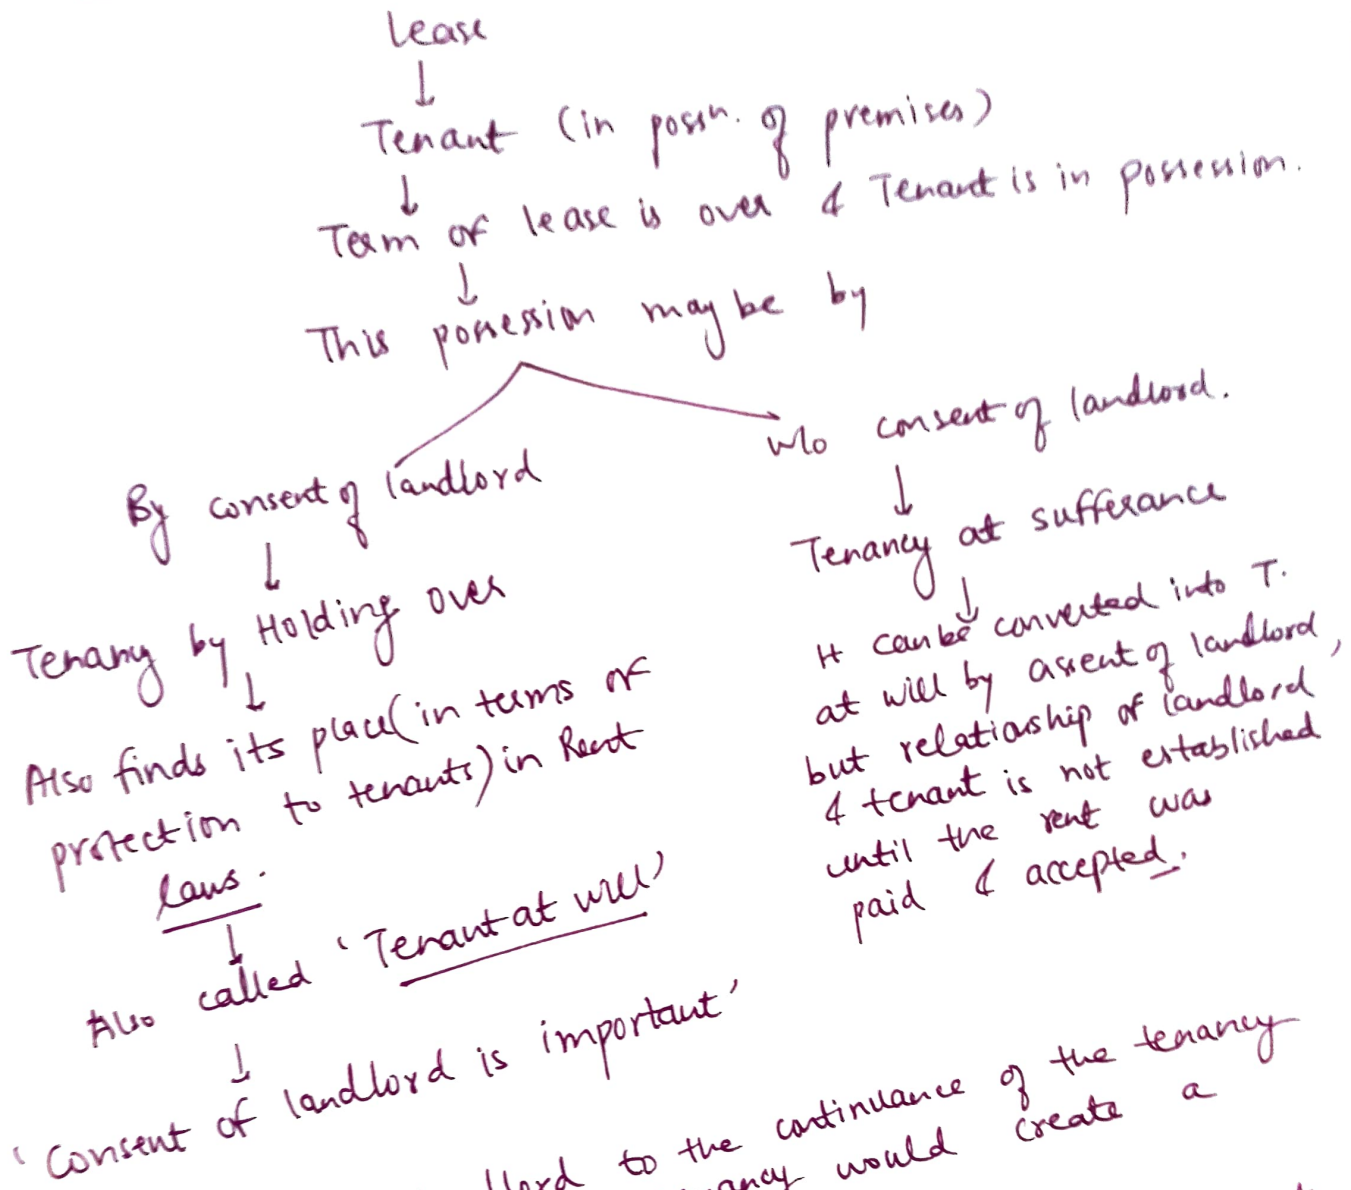 Lease
↓
Tenant (in possn. of premises)
↓
Term of lease is over & Tenant is in possession.
↓
This possession may be by
By consent of landlord
↓
Tenancy by Holding over
↓
Also finds its place (in terms of
protection to tenants) in Rent
laws.
↓
Also called 'Tenant at will'
↓
'Consent of landlord is important'
w/o consent of landlord.
↓
Tenancy at sufferance
↓
It can be converted into T.
at will by assent of landlord,
but relationship of landlord
& tenant is not established
until the rent was
paid & accepted.
to the continuance of the tenancy
would create a